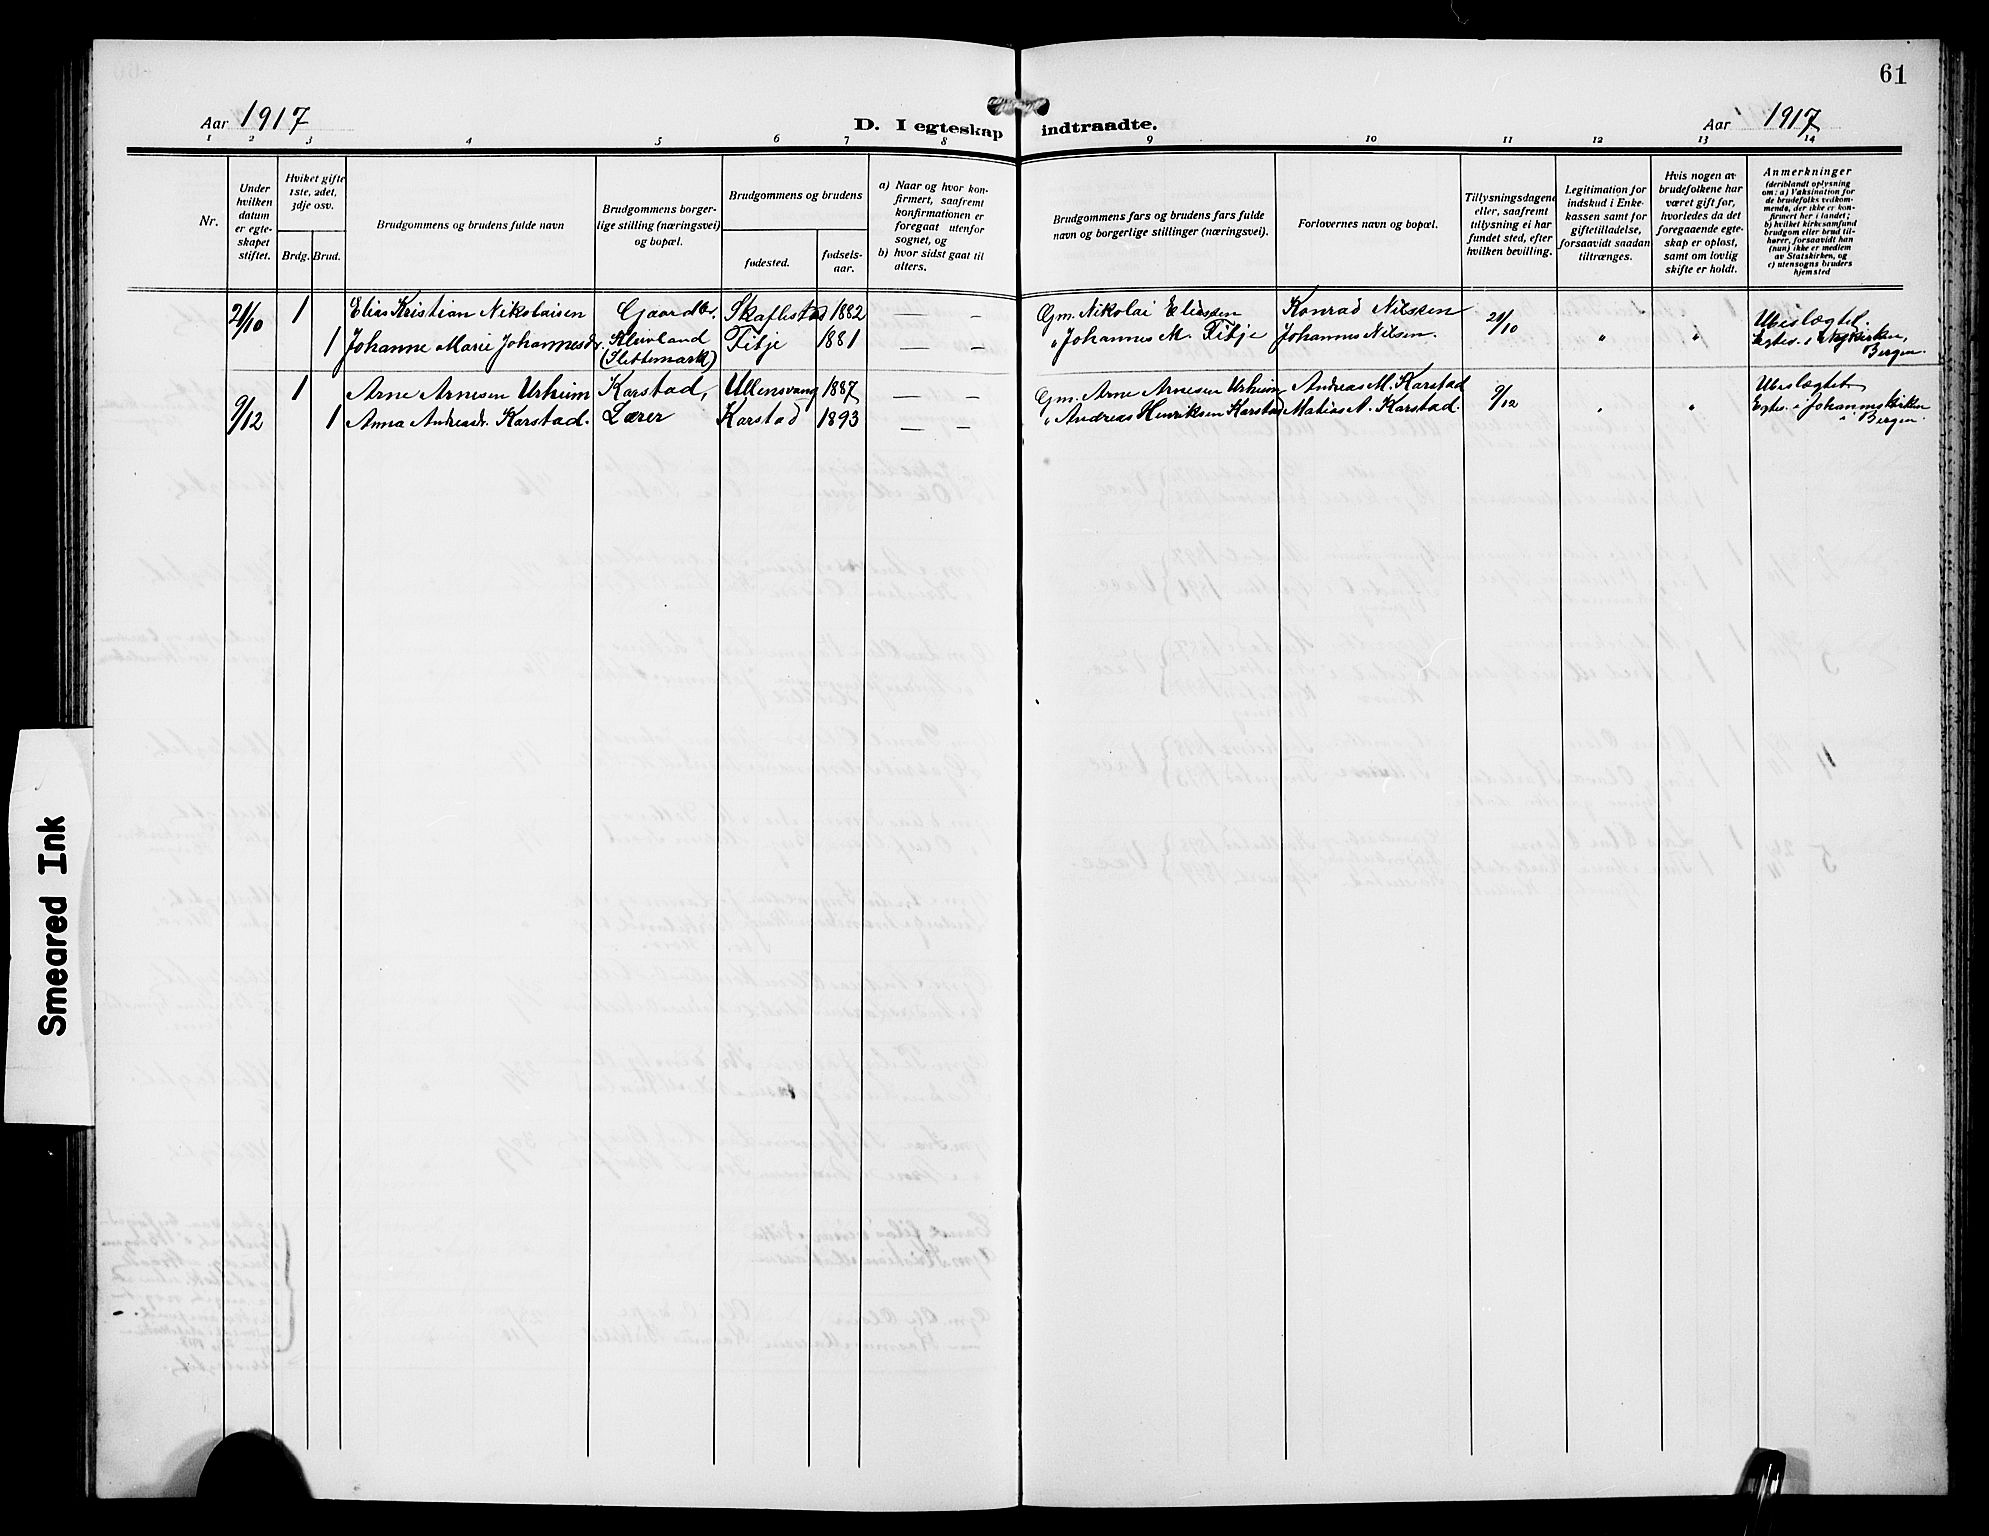 61
Aar 1917
D. I egteskap indtraadte.
Aar 1917
1 2 3 4 5 6 7 8 9 10 11 12 13 14
Nr.
Under hvilken datum er egteskapet stiftet.
Hviket gifte 1ste, 2det, 3dje osv.
Brdg. Brud.
Brudgommens og brudens fulde navn
Brudgommens borgerlige stilling (næringsvei) og bopæl.
Brudgommens og brudens
fødested.
fødselsaar.
a) Naar og hvor konfirmert, saafremt konfirmationen er foregaat utenfor sognet, og
b) hvor sidst gaat til alters.
Brudgommens fars og brudens fars fulde navn og borgerlige stillinger (næringsvei).
Forlovernes navn og bopæl.
Tillysningsdagene eller, saafremt tillysning ei har fundet sted, efter hvilken bevilling.
Legitimation for indskud i Enkekassen samt for giftetilladelse, forsaavidt saadan tiltrænges.
Hvis nogen av brudefolkene har været gift før, hvorledes da det foregaaende egteskap er opløst, samt om lovlig skifte er holdt.
Anmerkninger
(deriblandt oplysning om: a) Vaksination for de brudefolks vedkommende, der ikke er konfirmert her i landet; b) hvilket kirkesamfund brudgom eller brud tilhører, forsaavidt han (hun) ikke er medlem av Statskirken, og c) utensogns bruders hjemsted
21/10 1 Elias Kristian Nikolaisen Gaardbr. Skaflestad 1882 — — Gm. Nikolai Eliassen Konrad Nilssen 21/10 Ubeslægtet.
1 Johanne Marie Johannesdr. Kleivland Titje 1881 — — " Johannes M. Titje Johannes Nilsen. " " Egtev. i Nykirken,
(Slettemark) Bergen.
9/12 1 Arne Arnesen Urheim Karstad, Ullensvang 1887 — — Gm. Arne Arnesen Urheim Andreas M. Karstad 9/12 Ubeslægtet
1 Anna Andreasdr. Karstad. Lærer Karstad 1893 — — " Andreas Henriksen Karstad Matias A. Karstad. " " Egtev. i Johanneskirken
i Bergen.
Smeared Ink